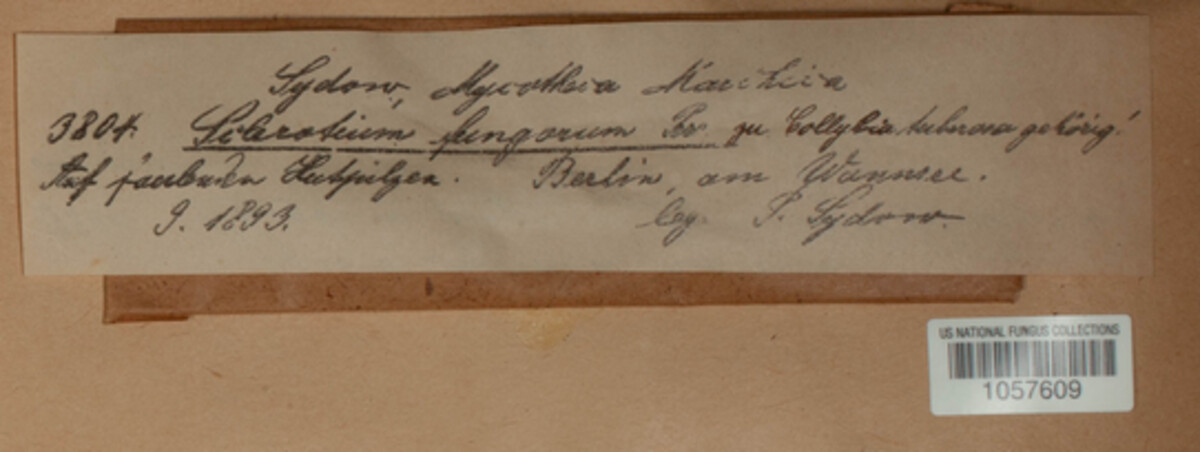 Sydow, Mycotheca Marchica
3804. Sclerotium fungorum Per. zu Collybia tuberosa gehörig!
Auf faulenden Hutpilzen. Berlin, am Wannsee.
9. 1893. leg. P. Sydow.
US NATIONAL FUNGUS COLLECTIONS
1057609